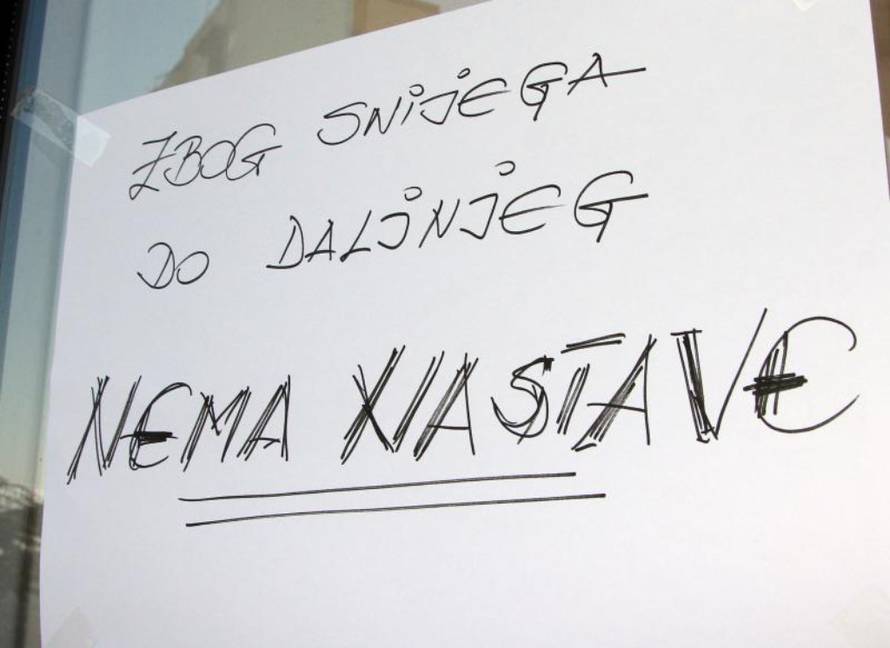 ZBOG SNIJEGA
DO DALJNJEG
NEMA NASTAVE